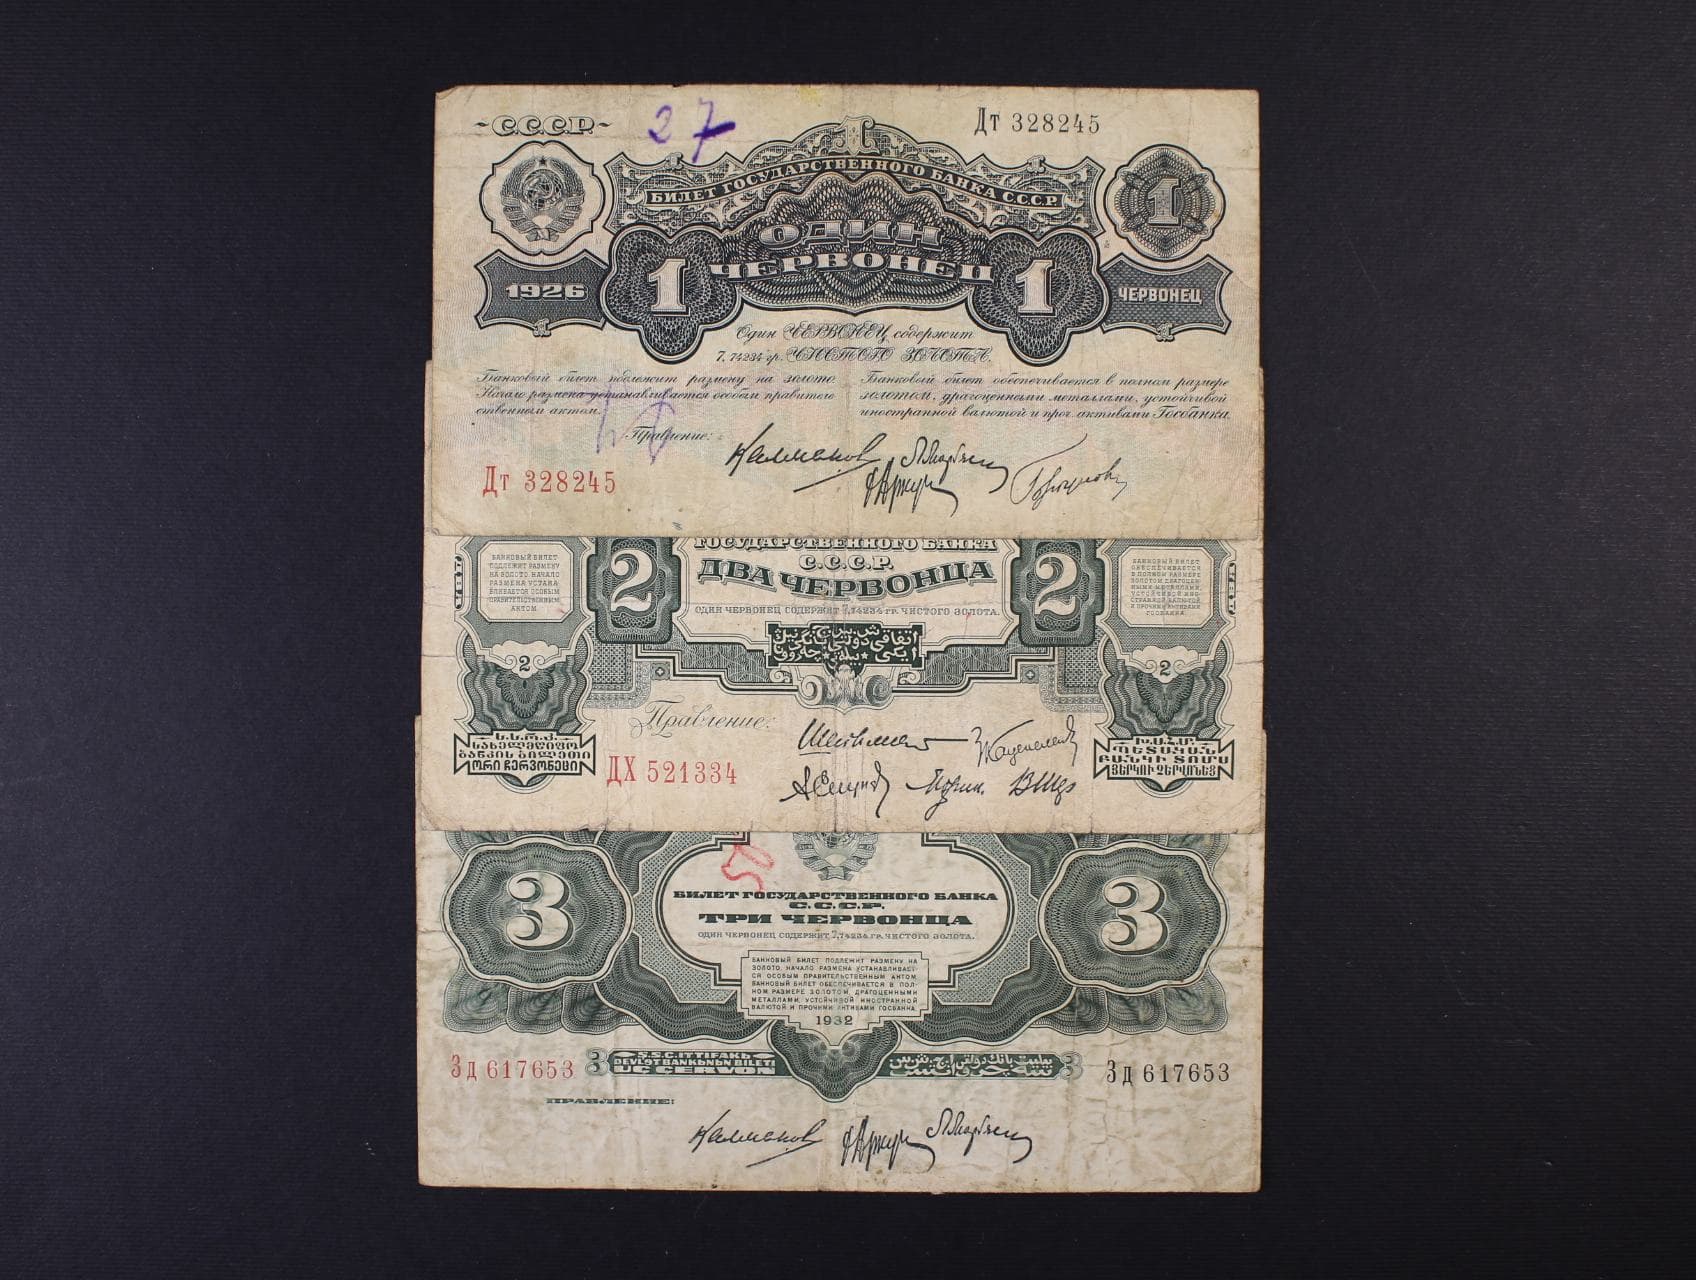 С.С.С.Р.
27
Дт 328245
1
БИЛЕТ ГОСУДАРСТВЕННОГО БАНКА С.С.С.Р.
1 1
ОДИН
ЧЕРВОНЕЦ
1
1926
1
1
ЧЕРВОНЕЦ
1 1
Один ЧЕРВОНЕЦ содержит
7,74234 гр. ЧИСТОГО ЗОЛОТА.
Банковый билет подлежит размену на золото.
Начало размена устанавливается особым правитель
ственным актом.
Банковый билет обеспечивается в полном размере
золотом, драгоценными металлами, устойчивой
иностранной валютой и проч. активами Госбанка.
Правление:
Дт 328245
ГОСУДАРСТВЕННОГО БАНКА
С.С.С.Р.
ДВА ЧЕРВОНЦА
ОДИН ЧЕРВОНЕЦ СОДЕРЖИТ 7,74234 ГР. ЧИСТОГО ЗОЛОТА.
2
2
БАНКОВЫЙ БИЛЕТ
ПОДЛЕЖИТ РАЗМЕНУ
НА ЗОЛОТО. НАЧАЛО
РАЗМЕНА УСТАНА-
ВЛИВАЕТСЯ ОСОБЫМ
ПРАВИТЕЛЬСТВЕННЫМ
АКТОМ.
БАНКОВЫЙ БИЛЕТ
ОБЕСПЕЧИВАЕТСЯ
В ПОЛНОМ РАЗМЕРЕ
ЗОЛОТОМ, ДРАГОЦЕН-
НЫМИ МЕТАЛЛАМИ,
УСТОЙЧИВОЙ ИНО-
СТРАННОЙ ВАЛЮТОЙ
И ПРОЧИМИ АКТИВАМИ
ГОСБАНКА.
2
2
Правление:
ს.ს.რ.კ.
სახელმწიფო
ბანკის ბილეთი
ორი ჩერვონეცი
Խ.Ս.Հ.Մ.
ՊԵՏԱԿԱՆ
ԲԱՆԿԻ ՏՈՄՍ
ՅԵՐԿՈՒ ՉԵՐՎՈՆԵՑ
ДХ 521334
50
3
3
БИЛЕТ ГОСУДАРСТВЕННОГО БАНКА
С.С.С.Р.
ТРИ ЧЕРВОНЦА
ОДИН ЧЕРВОНЕЦ СОДЕРЖИТ 7,74234 ГР. ЧИСТОГО ЗОЛОТА.
БАНКОВЫЙ БИЛЕТ ПОДЛЕЖИТ РАЗМЕНУ НА
ЗОЛОТО. НАЧАЛО РАЗМЕНА УСТАНАВЛИВАЕТ-
СЯ ОСОБЫМ ПРАВИТЕЛЬСТВЕННЫМ АКТОМ.
БАНКОВЫЙ БИЛЕТ ОБЕСПЕЧИВАЕТСЯ В ПОЛ-
НОМ РАЗМЕРЕ ЗОЛОТОМ, ДРАГОЦЕННЫМИ
МЕТАЛЛАМИ, УСТОЙЧИВОЙ ИНОСТРАННОЙ
ВАЛЮТОЙ И ПРОЧИМИ АКТИВАМИ ГОСБАНКА.
1932
Зд 617653
3
S.S.C. ITTIFAKЬ
DEVLƏT BANKЬNЬN BILETI
UC CERVON
3
Зд 617653
ПРАВЛЕНИЕ: